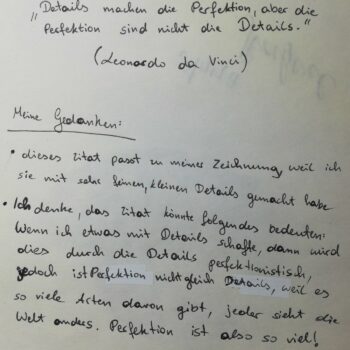 „Details machen die Perfektion, aber die
Perfektion sind nicht die Details."
(Leonardo da Vinci)
Meine Gedanken:
• dieses Zitat passt zu meiner Zeichnung weil ich
sie mit sehr feinen, kleinen Details gemacht habe
• Ich denke, das Zitat könnte folgendes bedeuten:
Wenn ich etwas mit Details schaffe, dann wird
dies durch die Details perfektionistisch,
jedoch ist Perfektion nicht gleich Details, weil es
so viele Arten davon gibt, jeder sieht die
Welt anders. Perfektion ist also so viel!